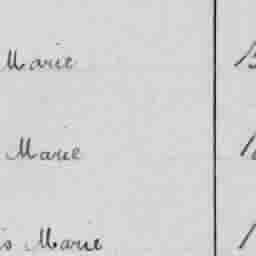 Marie
Marie
is Marie